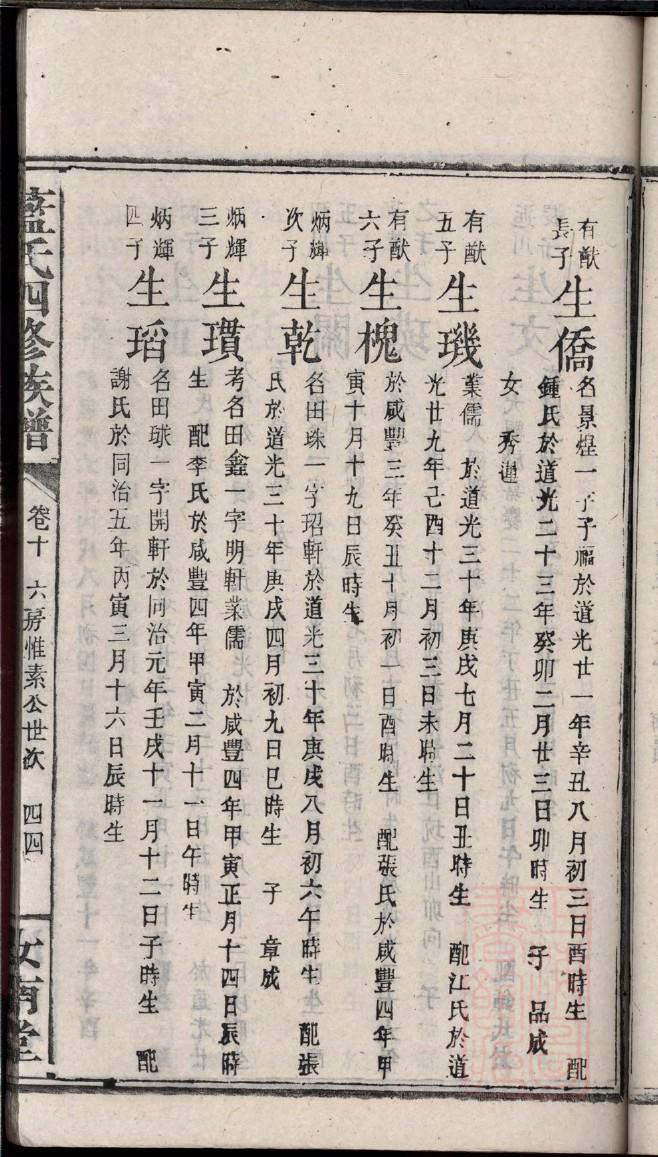 有猷長子 生僑 名景煌一字子福於道光廿一年辛丑八月初三日酉時生 配
鍾氏於道光二十三年癸卯二月廿三日卯時生 子 品成
女 秀蓮
有猷五子 生璣 業儒 於道光三十年庚戌七月二十日丑時生 配江氏於道
光廿九年己酉十二月初三日未時生
有猷六子 生槐 於咸豐三年癸丑十月初一日酉時生 配張氏於咸豐四年甲
寅十月十九日辰時生
炳輝次子 生乾 名田珠一字玿軒於道光三十年庚戌八月初六午時生 配張
氏於道光三十年庚戌四月初九日巳時生 子 章成
炳輝三子 生瓚 考名田鑫一字明軒業儒 於咸豐四年甲寅正月十四日辰時
生 配李氏於咸豐四年甲寅二月十一日午時生
炳輝四子 生瑫 名田球一字開軒於同治元年壬戌十一月十二日子時生 配
謝氏於同治五年丙寅三月十六日辰時生
藍氏四修族譜 卷十 六房惟素公世次 四四 汝南堂